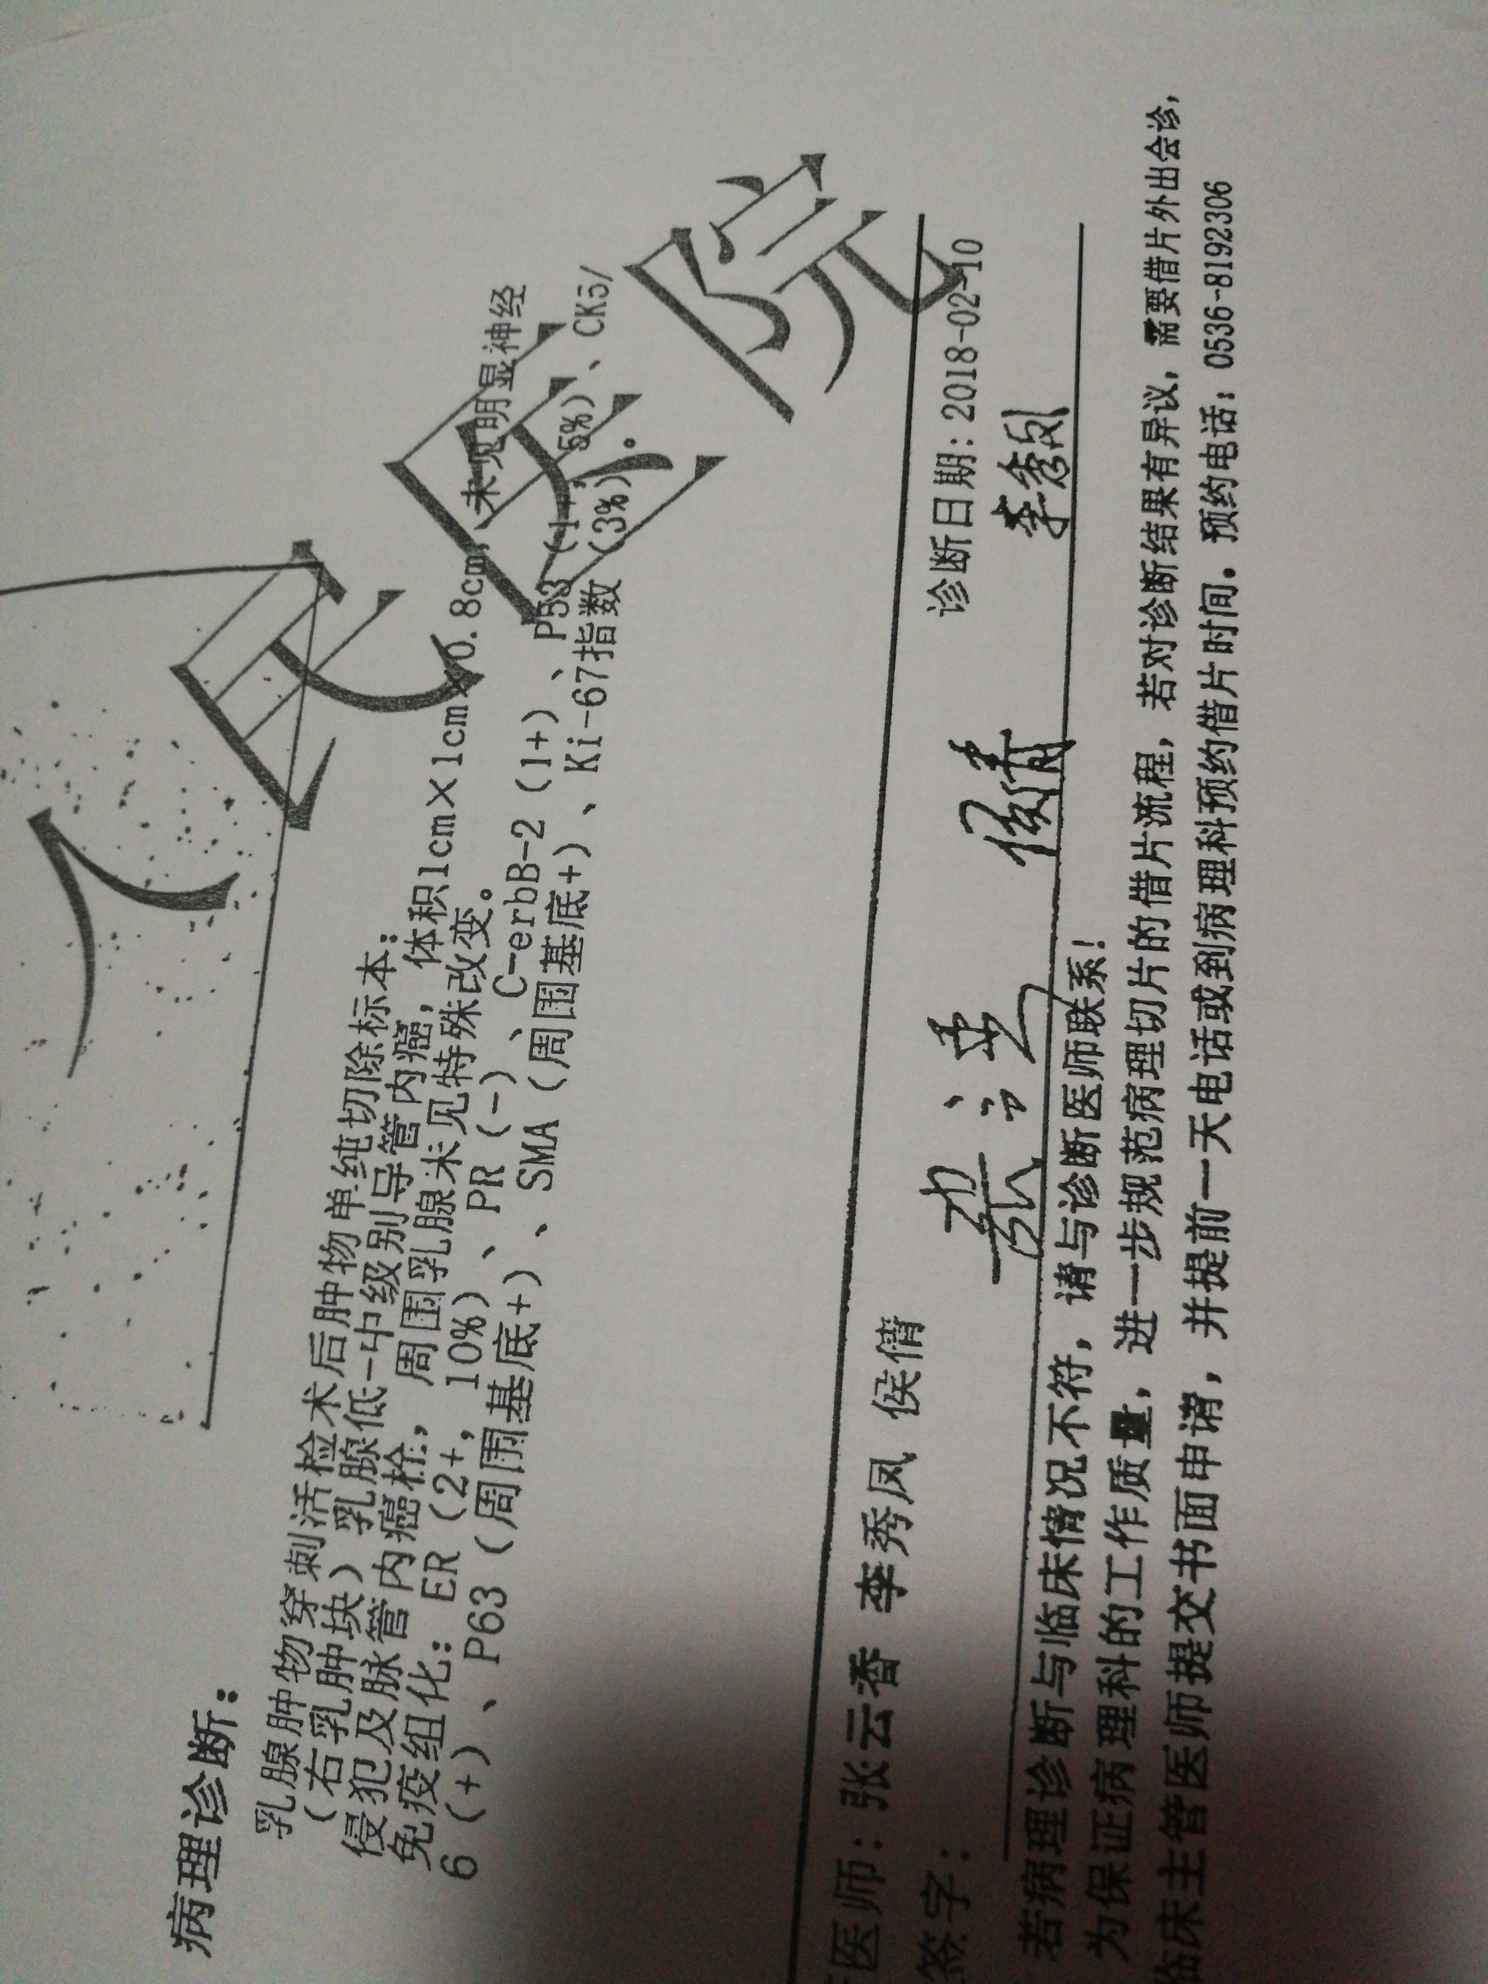 人民医院
病理诊断：
乳腺肿物穿刺活检术后肿物单纯切除标本：
（右乳肿块）乳腺低-中级别导管内癌，体积1cm×1cm×0.8cm，未见明显神经
侵犯及脉管内癌栓，周围乳腺未见特殊改变。
免疫组化：ER（2+，10%）、PR（-）、C-erbB-2（1+）、P53（1+，5%）、CK5/
6（+）、P63（周围基底+）、SMA（周围基底+）、Ki-67指数（3%）。
医师：张云香 李秀凤 侯倩 诊断日期：2018-02-10
签字： 侯倩 李秀凤
若病理诊断与临床情况不符，请与诊断医师联系！
为保证病理科的工作质量，进一步规范病理切片的借片流程，若对诊断结果有异议，需要借片外出会诊，
临床主管医师提交书面申请，并提前一天电话或到病理科预约借片时间。预约电话：0536-8192306